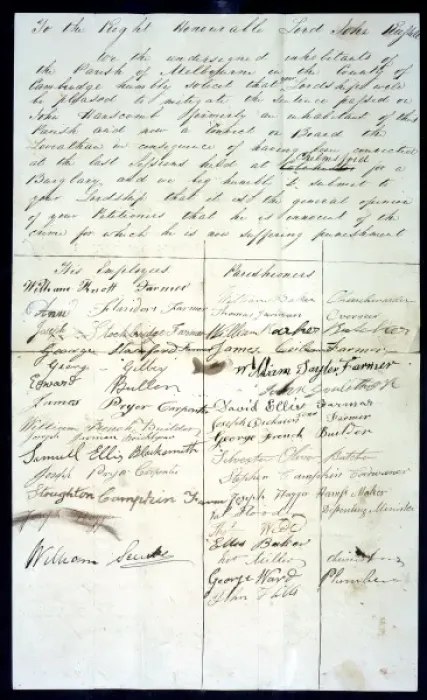 To the Right Honourable Lord John Russell
We the undersigned inhabitants of
the Parish of Melbourne in the County of
Cambridge humbly solicit that your Lordship will
be pleased to mitigate the sentence passed on
John Hanscomb formerly an inhabitant of this
Parish and now a Convict on Board the
Leviathan in consequence of having been convicted
at the last Sessions held at Chelmsford for a
Burglary and we beg humbly to submit to
your Lordship that it is the general opinion
of your Petitioners that he is innocent of the
crime for which he is now suffering punishment
His Employers
William Knott Farmer
Ann Farmer
Joseph Stockbridge Farmer
George Stanford Farmer
George
Edward Bullen
James Pryor Carpenter
William French Builder
Joseph Jarman Bricklayer
Samuel Ellis Blacksmith
Joseph Pryor Carpenter
Stoughton Campkin Farmer
William
Parishioners
William Churchwarden
Thomas Jarman Overseer
William Barker
James Farmer
William Taylor Farmer
John
David Ellis Farmer
Joseph Farmer
George French Builder
Silvester Oliver Butcher
Stephen Campkin Cordwainer
Joseph Harness Maker
Flood Dispenting Minister
Thos Wede
Ellis Baker
Miller
George Ward Plumber
John